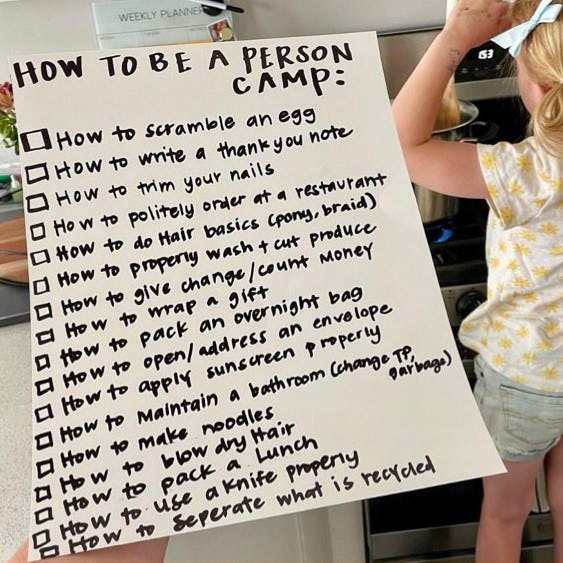 WEEKLY PLANNER
HOW TO BE A PERSON
CAMP:
How to scramble an egg
How to write a thank you note
How to trim your nails
How to politely order at a restaurant
How to do Hair basics (pony, braid)
How to properly wash + cut produce
How to give change/count money
How to wrap a gift
How to pack an overnight bag
How to open/address an envelope
How to apply sunscreen properly
How to Maintain a bathroom (change TP,
garbages)
How to make noodles
How to blow dry Hair
How to pack a Lunch
How to use a knife properly
How to seperate what is recycled
153